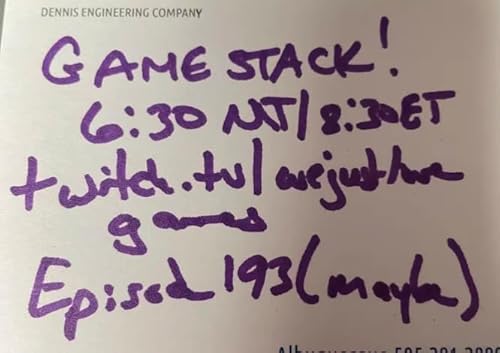 DENNIS ENGINEERING COMPANY
GAME STACK!
6:30 MT/8:30ET
twitch.tv/wejustlove
games
Episod 193 (maybe)